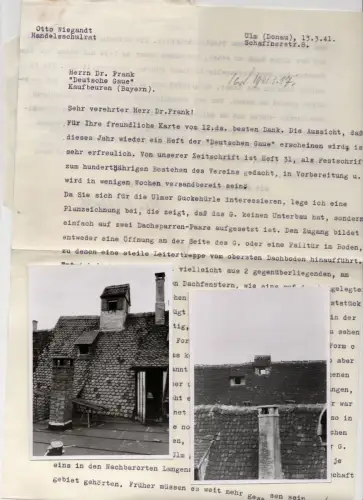 Otto Wiegandt
Handelsschulrat
Ulm (Donau), 13.3.41.
Schaffnerstr.8.
Herrn Dr. Frank
"Deutsche Gaue"
Kaufbeuren (Bayern).
Sehr verehrter Herr Dr.Frank!
Für Ihre freundliche Karte vom 12.ds. besten Dank. Die Aussicht, daß
dieses Jahr wieder ein Heft der "Deutschen Gaue" erscheinen wird, is
sehr erfreulich. Von unserer Zeitschrift ist Heft 31, als Festschrif
zum hundertjährigen Bestehen des Vereins gedacht, in Vorbereitung u.
wird in wenigen Wochen versandbereit sein.
Da Sie sich für die Ulmer Guckehürle interessieren, lege ich eine
Planzeichnung bei, die zeigt, daß das G. keinen Unterbau hat, sondern
einfach auf zwei Dachsparren-Paare aufgesetzt ist. Den Zugang bildet
entweder eine Öffnung an der Seite des G. oder eine Falltür im Boden,
zu denen eine steile Leitertreppe vom obersten Dachboden hinaufführt.
vielleicht aus 2 gegenüberliegenden, am
en Dachfenstern, wie eine auf
gelegte
chen
stück
ügt
in der
tig,
sehen
Form
Form o
ze k
aber
enen
ber
ngen,
er
r war
net
in
chen
en,
r G.
Ulm
je
eins in den Nachbarorten Langena
schaft
gebiet gehörten. Früher müssen es weit mehr
sen sein